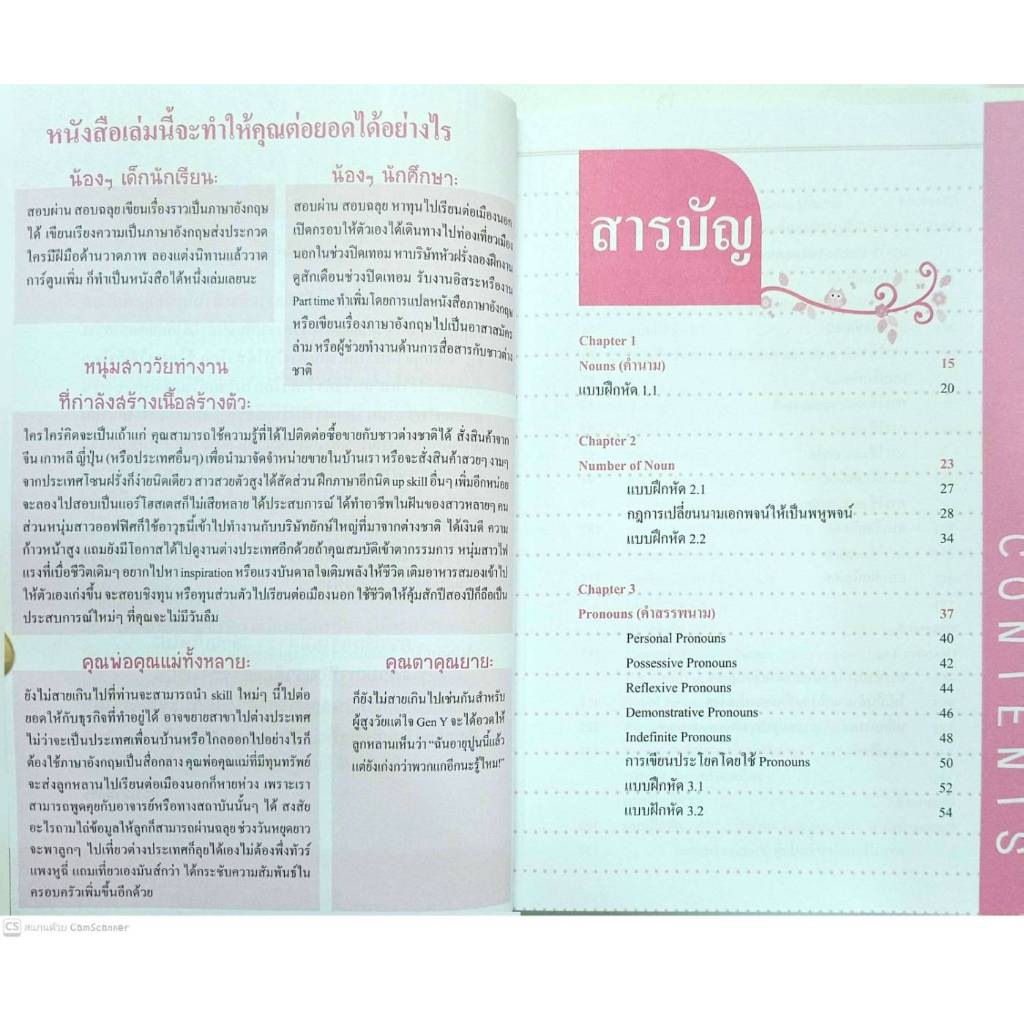 หนังสือเล่มนี้จะทำให้คุณต่อยอดได้อย่างไร
น้องๆ เด็กนักเรียน:
สอบผ่าน สอบฉลุย เขียนเรื่องราวเป็นภาษาอังกฤษ
ได้ เขียนเรียงความเป็นภาษาอังกฤษส่งประกวด
ใครมีฝีมือด้านวาดภาพ ลองแต่งนิทานแล้ววาด
การ์ตูนเพิ่ม ก็ทำเป็นหนังสือได้หนึ่งเล่มเลยนะ
น้องๆ นักศึกษา:
สอบผ่าน สอบฉลุย หาทุนไปเรียนต่อเมืองนอก
เปิดกรอบให้ตัวเองได้เดินทางไปท่องเที่ยวเมือง
นอกในช่วงปิดเทอม หาบริษัทหัวฝรั่งลองฝึกงาน
ดูสักเดือนช่วงปิดเทอม รับงานอิสระหรืองาน
Part time ทำเพิ่มโดยการแปลหนังสือภาษาอังกฤษ
หรือเขียนเรื่องภาษาอังกฤษไปเป็นอาสาสมัคร
ล่าม หรือผู้ช่วยทำงานด้านการสื่อสารกับชาวต่าง
ชาติ
หนุ่มสาววัยทำงาน
ที่กำลังสร้างเนื้อสร้างตัว:
ใครใคร่คิดจะเป็นเถ้าแก่ คุณสามารถใช้ความรู้ที่ได้ไปติดต่อซื้อขายกับชาวต่างชาติได้ สั่งสินค้าจาก
จีน เกาหลี ญี่ปุ่น (หรือประเทศอื่นๆ) เพื่อนำมาจัดจำหน่ายขายในบ้านเรา หรือจะสั่งสินค้าสวยๆ งามๆ
จากประเทศโซนฝรั่งก็ง่ายนิดเดียว สาวสวยตัวสูงได้สัดส่วน ฝึกภาษาอีกนิด up skill อื่นๆ เพิ่มอีกหน่อย
จะลองไปสอบเป็นแอร์โฮสเตสก็ไม่เสียหลาย ได้ประสบการณ์ ได้ทำอาชีพในฝันของสาวหลายๆ คน
ส่วนหนุ่มสาวออฟฟิศก็ใช้อาวุธนี้เข้าไปทำงานกับบริษัทยักษ์ใหญ่ที่มาจากต่างชาติ ได้เงินดี ความ
ก้าวหน้าสูง แถมยังมีโอกาสได้ไปดูงานต่างประเทศอีกด้วยถ้าคุณสมบัติเข้าตากรรมการ หนุ่มสาวไฟ
แรงที่เบื่อชีวิตเดิมๆ อยากไปหา inspiration หรือแรงบันดาลใจเติมพลังให้ชีวิต เติมอาหารสมองเข้าไป
ให้ตัวเองเก่งขึ้น จะสอบชิงทุน หรือทุนส่วนตัวไปเรียนต่อเมืองนอก ใช้ชีวิตให้คุ้มสักปีสองปีก็ถือเป็น
ประสบการณ์ใหม่ๆ ที่คุณจะไม่มีวันลืม
คุณพ่อคุณแม่ทั้งหลาย:
ยังไม่สายเกินไปที่ท่านจะสามารถนำ skill ใหม่ๆ นี้ไปต่อ
ยอดให้กับธุรกิจที่ทำอยู่ได้ อาจขยายสาขาไปต่างประเทศ
ไม่ว่าจะเป็นประเทศเพื่อนบ้านหรือไกลออกไปอย่างไรก็
ต้องใช้ภาษาอังกฤษเป็นสื่อกลาง คุณพ่อคุณแม่ที่มีทุนทรัพย์
จะส่งลูกหลานไปเรียนต่อเมืองนอกก็หายห่วง เพราะเรา
สามารถพูดคุยกับอาจารย์หรือทางสถาบันนั้นๆ ได้ สงสัย
อะไรถามไถ่ข้อมูลให้ลูกก็สามารถผ่านฉลุย ช่วงวันหยุดยาว
จะพาลูกๆ ไปเที่ยวต่างประเทศก็ลุยได้เองไม่ต้องพึ่งทัวร์
แพงหูฉี่ แถมเที่ยวเองมันส์กว่า ได้กระชับความสัมพันธ์ใน
ครอบครัวเพิ่มขึ้นอีกด้วย
คุณตาคุณยาย:
ก็ยังไม่สายเกินไปเช่นกันสำหรับ
ผู้สูงวัยแต่ใจ Gen Y จะได้อวดให้
ลูกหลานเห็นว่า “ฉันอายุปูนนี้แล้ว
แต่ยังเก่งกว่าพวกแกอีกนะรู้ไหม!”
สารบัญ
Chapter 1
Nouns (คำนาม) 15
แบบฝึกหัด 1.1 20
Chapter 2
Number of Noun 23
แบบฝึกหัด 2.1 27
กฎการเปลี่ยนนามเอกพจน์ให้เป็นพหูพจน์ 28
แบบฝึกหัด 2.2 34
Chapter 3
Pronouns (คำสรรพนาม) 37
Personal Pronouns 40
Possessive Pronouns 42
Reflexive Pronouns 44
Demonstrative Pronouns 46
Indefinite Pronouns 48
การเขียนประโยคโดยใช้ Pronouns 50
แบบฝึกหัด 3.1 52
แบบฝึกหัด 3.2 54
CONTENTS
CS สแกนด้วย CamScanner